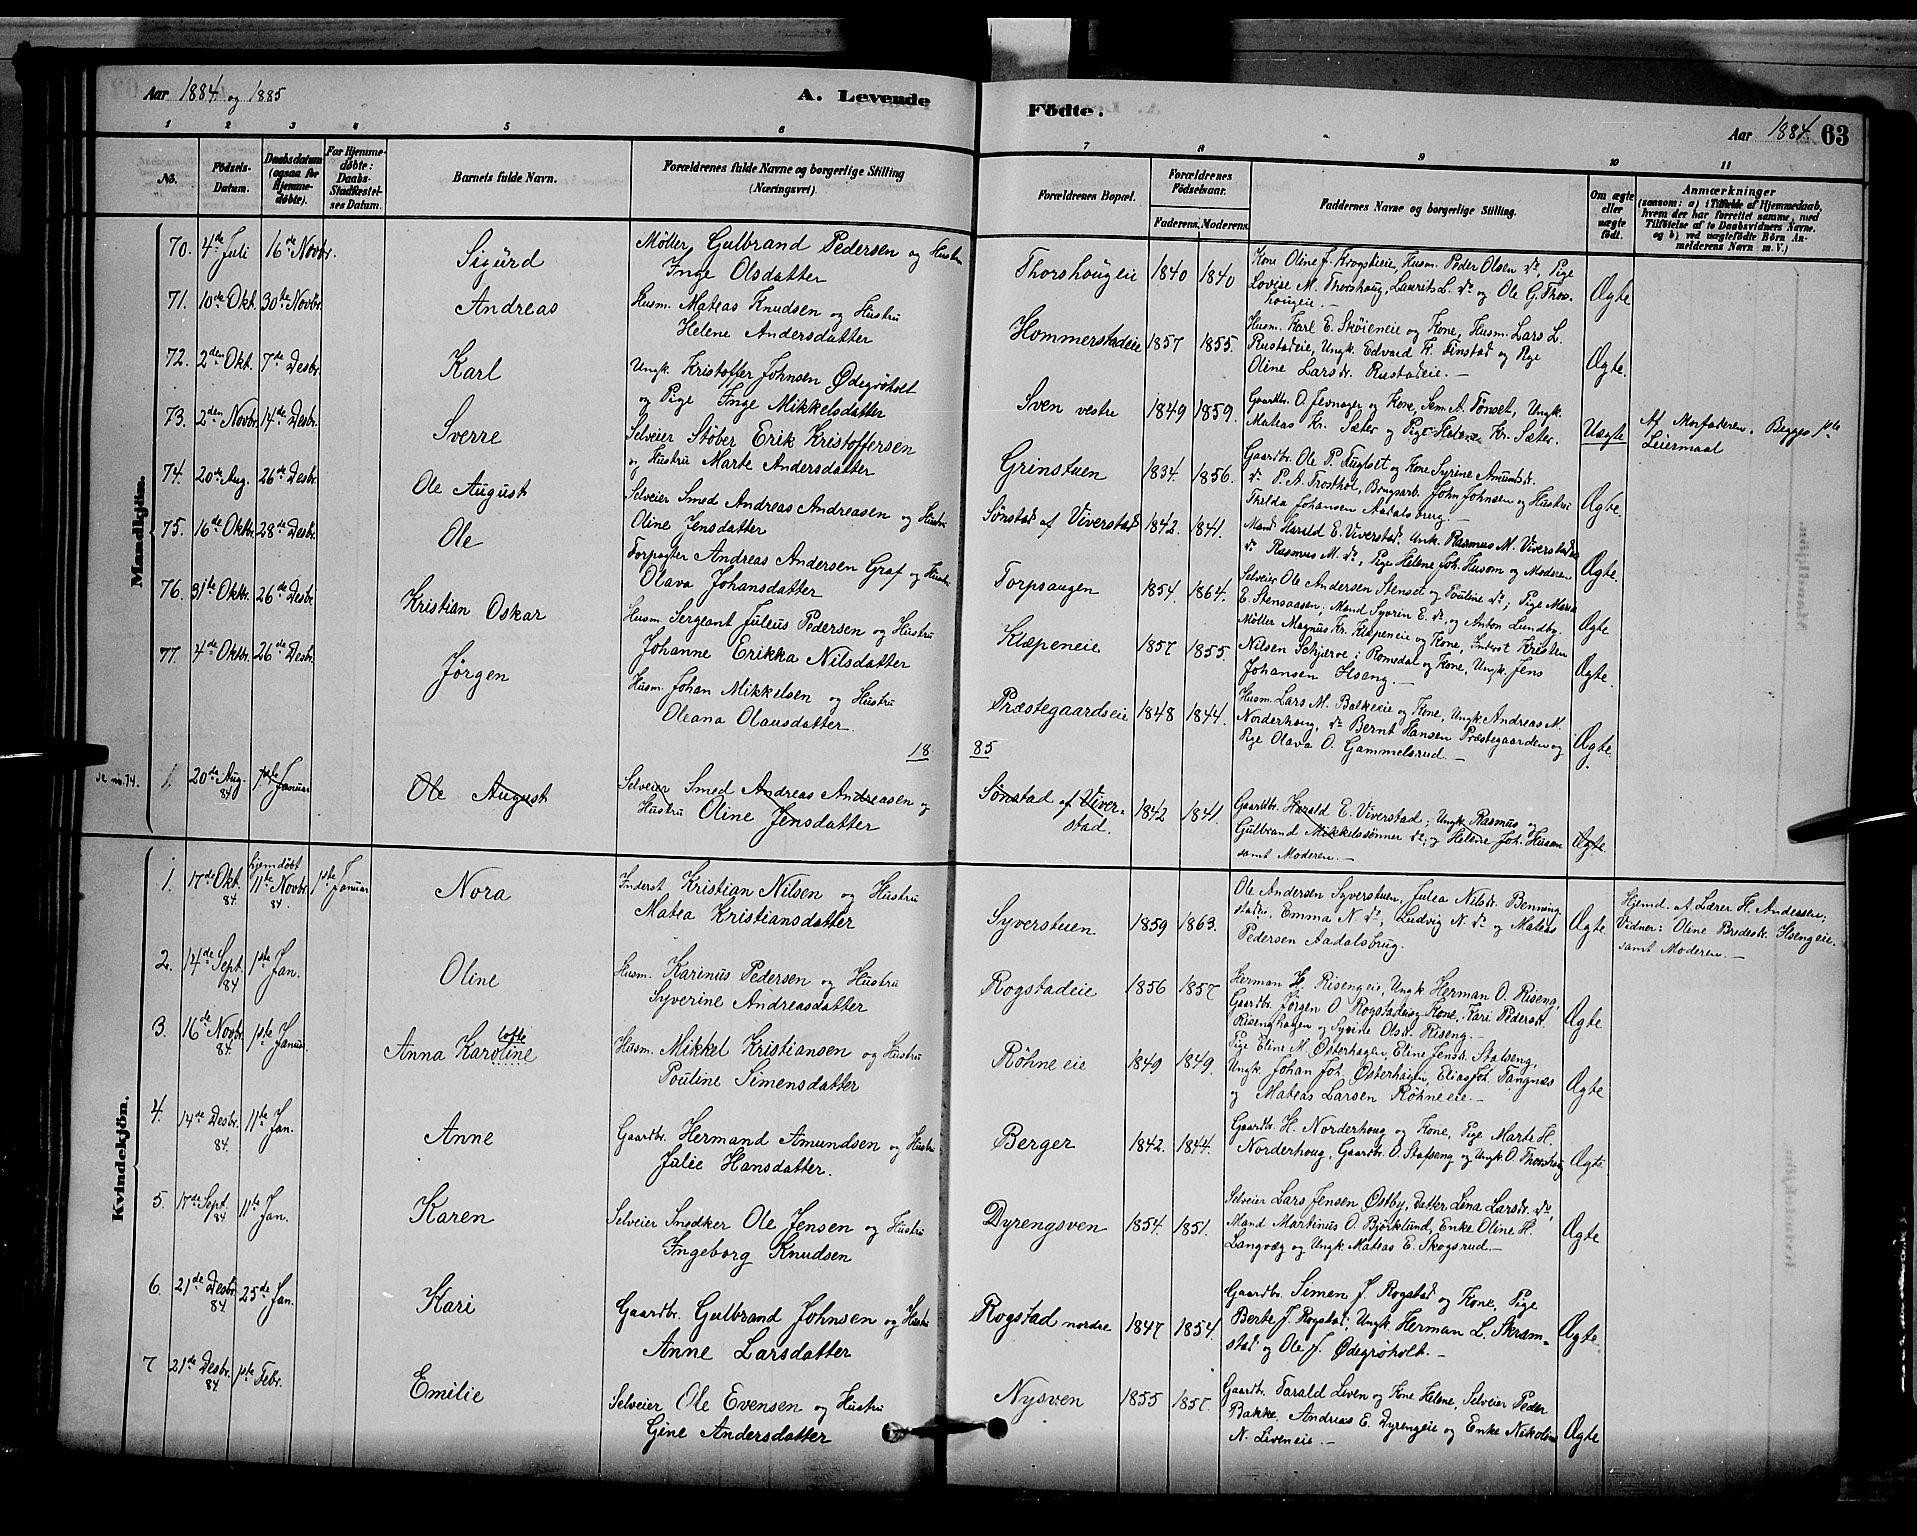 Aar 1884 og 1885
A. Levende
Födte.
Aar 1884 63
1 2 3 4 5 6 7 8 9 10 11
No.
Födsels-Datum.
Daabsdatum (ogsaa for Hjemme-döbte).
For Hjemme-döbte: Daabs-Stadfæstel-ses Datum.
Barnets fulde Navn.
Forældrenes fulde Navne og borgerlige Stilling (Næringsvei).
Forældrenes Bopæl.
Forældrenes Födselsaar.
Faderens. Moderens.
Faddernes Navne og borgerlige Stilling.
Om ægte eller uægte födt.
Anmærkninger
(saasom: a) i Tilfælde af Hjemmedaab, hvem der har forrettet samme, med Tilföielse af to Daabsvidners Navne, og b) ved uægtefödte Börn Anmelderens Navn m. V.)
Mandkjön.
70. 4de Juli 16de Novbr. Sigurd Møller Gulbrand Pedersen og Hustru
Inge Olsdatter Thorshougeie 1840 1840 Kone Oline J. Krogstieie, Husm. Peder Olsen do, Pige
Lovise M. Thorshoug, Laurits L. do og Ole G. Thorshougeie.— Ægte
71. 10de Okt. 30te Novbr. Andreas Husm. Mateas Knudsen og Hustru
Helene Andersdatter Hommerstadeie 1857 1855. Husm. Karl E. Skøieneie og Kone, Husm. Lars L.
Rustadeie, Ungk. Edvard K. Finstad og Pige
Oline Larsdr. Rustadeie.— Ægte.
72. 2den Okt. 7de Desbr. Karl Ungk. Kristoffer Johnsen Ødegrøholt
og Pige Inge Mikkelsdatter Sven vestre 1849 1859. Gaardbr. O. Jevnager og Kone, Sem. A. Tønset, Ungk.
Mateas Kr. Sæter og Pige Helene Kr. Sæter. Uægte Af Morfaderen. Begges 1ste
Leiermaal
73. 2den Novbr. 14de Desbr. Sverre Selveier Støber Erik Kristoffersen
og Hustru Marte Andersdatter Grinstuen 1834. 1856. Gaardbr. Ole P. Fuglset og Kone Syrine Amundsdr.
do P. A. Frosthol, Brugsarb. John Johnsen og Hustru
Thilda Johansen Aadalsbrug.— Ægte.
74. 20de Aug. 26de Desbr. Ole August Selveier Smed Andreas Andreasen og Hustru
Oline Jensdatter Sønstad af Viverstad 1842. 1841. Mand Harald E. Viverstad, Ungk. Rasmus M. Viverstad,
do Rasmus M. do, Pige Helene Joh. Husom og Moderen Ægte.
75. 16de Oktbr. 28de Desbr. Ole Forpagter Andreas Andersen Graf og Hustru
Olava Johansdatter Torpsaugen 1854. 1864. Selveier Ole Andersen Stenset og Pouline do; Pige Maria
E. Stensaasen, Mand Syvrin E. do, og Anton Lundby. Ægte
76. 31te Oktbr. 26de Desbr. Kristian Oskar Husm. Sergeant Juleus Pedersen og Hustru
Johanne Erikka Nilsdatter Klæpeneie 1857 1855. Møller Magnus Kr. Klæpeneie og Kone, Inderst Kristen
Nilsen Schjerve i Romedal og Kone, Ungk. Jens
Johansen Ilseng.— Ægte.
77. 4de Oktbr. 26de Desbr. Jørgen Husm. Johan Mikkelsen og Hustru
Oleana Olausdatter. Præstegaardseie 1848 1844. Husm. Lars M. Balkeeie og Kone, Ungk. Andreas M.
Norderhoug, do Bernt Hansen Præstegaarden og
Pige Olava O. Gammelsrud.— Ægte.
18 85
se no. 74. 1. 20de Aug. 84 1ste Januar Ole August Selveier Smed Andreas Andreasen og
Hustru Oline Jensdatter Sønstad af Viver-
stad. 1842 1841. Gaardbr. Harald E. Viverstad; Ungk. Rasmus og
Gulbrand Mikkelssønner do; og Helene Joh. Husom
samt Moderen.— Ægte.
Kvindekjön.
1. 17de Okt. 84. hjemdøbt 11te Novbr. 84. 1ste Januar Nora Inderst Kristian Nilsen og Hustru
Matea Kristiansdatter Syverstuen 1859 1863. Ole Andersen Syverstuen, Julea Nilsdr. Benning-
stad, Emma N do, Ludvig N. do og Mateas
Pedersen Aadalsbrug. Ægte Hjemd. A. Lærer H. Andersen;
Vidner: Oline Bredesdr. Ilsengeie
samt Moderen.—
2. 14de Sept. 84 1ste Jan. Oline Husm. Karinus Pedersen og Hustru
Syverine Andreasdatter Rogstadeie 1856 1857 Herman H. Risengeie, Ungk. Herman O. Riseng,
Gaardbr. Jørgen O. Rogstadeie og Kone, Kari Pedersdr.
Risenghagen og Syvine Olsdr. Riseng.— Ægte
3. 16de Novbr. 84. 1ste Januar Anna Karoline lotte Husm. Mikkel Kristiansen og Hustru
Pouline Simensdatter Röhneeie 1849 1849. Pige Eline M. Østerhagen, Eline Jensdr. Stafseng,
Ungk. Johan Joh. Østerhagen, Elias Joh. Tangnæs
og Mateas Larsen Röhneeie.— Ægte
4. 14de Desbr. 84 11te Jan. Anne Gaardbr. Hermand Amundsen og Hustru
Julie Hansdatter. Berger 1842. 1844. Gaardbr. H. Norderhoug og Kone, Pige Marte H.
Norderhoug, Gaardbr. O. Stafseng og Ungk. O. Thorshoug Ægte
5. 17de Sept. 84 11te Jan. Karen Selveier Snedker Ole Jensen og Hustru
Ingeborg Knudsen Dyrengsven 1854. 1851. Selveier Lars Jensen Østby, Datter Lena Larsdr. do,
Mand Martinus O. Bjørklund, Enke Oline H.
Langvæg og Ungk. Mateas E. Skogsrud.— Ægte
6. 21de Desbr. 84. 25de Jan. Kari Gaardbr. Gulbrand Johnsen og Hustru
Anne Larsdatter Rogstad nordre 1847 1854. Gaardbr. Simen J. Rogstad og Kone, Pige
Berte J. Rogstad; Ungk. Herman L. Skram-
stad og Ole J. Ødegrøholt.— Ægte.
7 21de Desbr. 84. 1ste Febr. Emilie Selveier Ole Evensen og Hustru
Gine Andersdatter Nysven 1855 1857. Gaardbr. Tarald Liven og Kone Helene, Selveier Peder
Bakke, Andreas E. Dyrengeie og Enke Nikoline
N. Liveneie.— Ægte